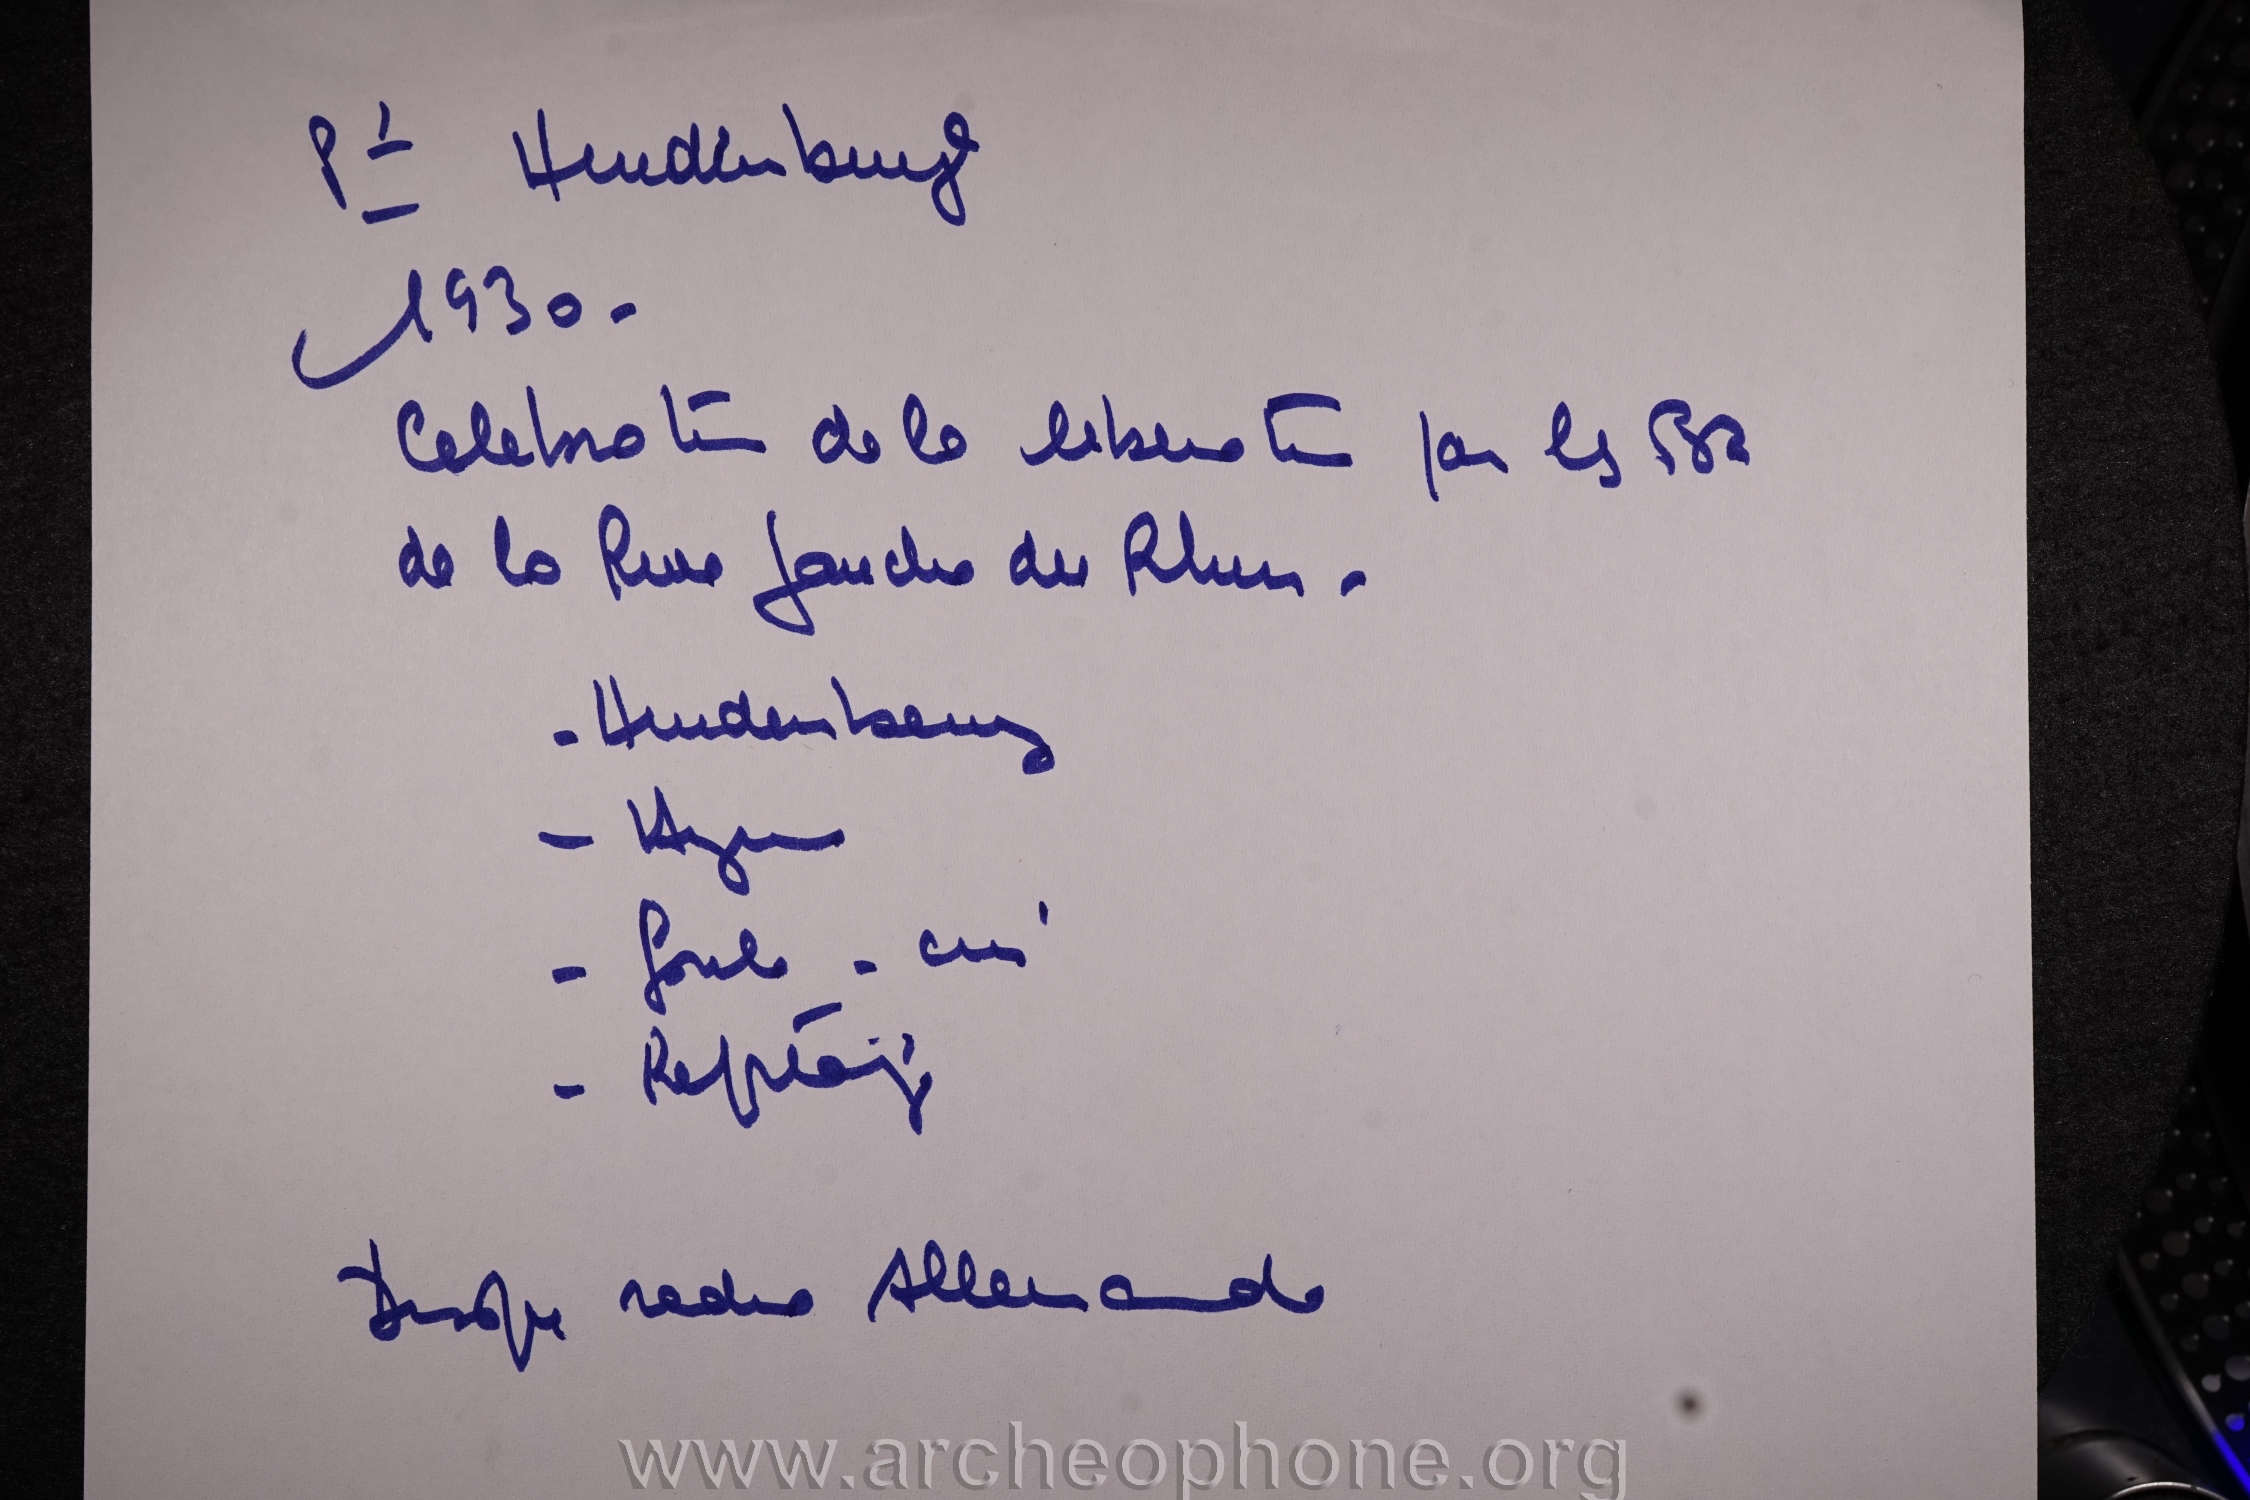 Pt Hindenburg
1930.
Celebration de la liberation par les
de la Rive gauche du Rhin.
- Hindenburg
- Hymne
- foule - cris
-
Disque radio Allemande
www.archeophone.org